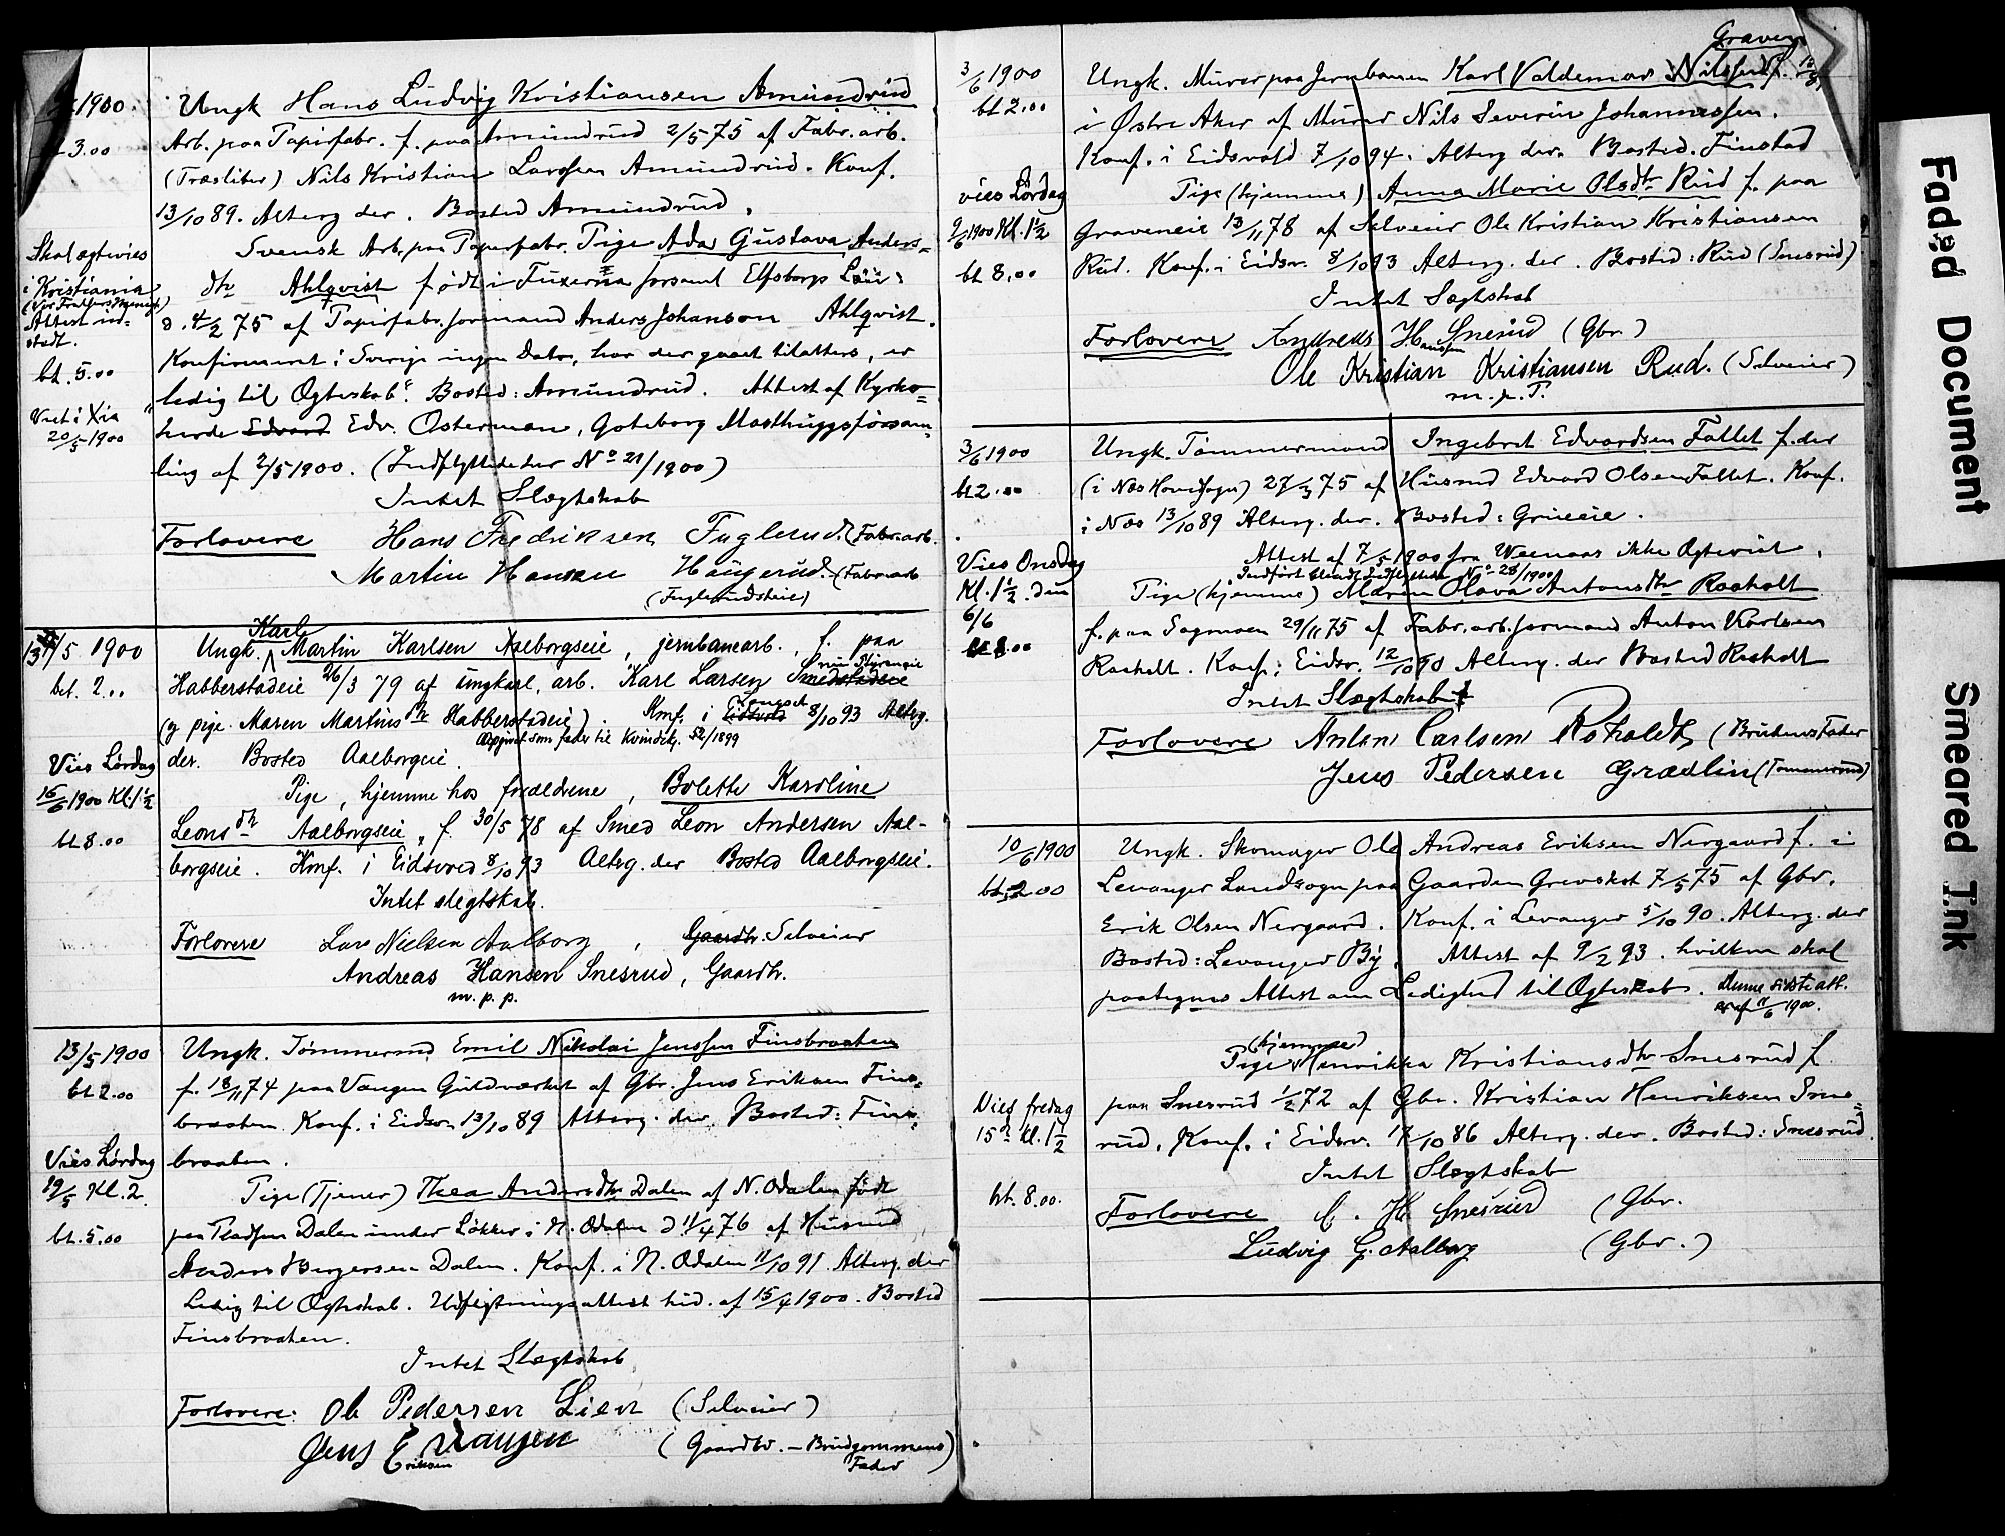 1900.
3.00
Ungk Hans Ludvig Kristiansen Amundrud
Arb. paa Papirfabr. f. paa Amundrud 2/5 75 af Fabr.arb.
(Træsliber) Nils Kristian Larssen Amundrud. Konf.
13/10 89. Alterg der. Bosted Amundrud.
Svensk Arb. paa Papirfabr. Pige Ada Gustava Anders=
dtr Ahlqvist født i Tuxerna forsaml Elfsborgs Län
d. 4/2 75 af Papirfabr. formand Anders Johanson Ahlqvist.
Konfirmeret i Sverige ingen Dato, har der gaaet tilalters, er
ledig til Ægteskab. Bosted: Amundrud. Attest af Kyrko=
herde Edvard Edv. Osterman, Goteborg Masthuggsförsam=
ling af 2/5 1900. (Indflyttede her No 21/1900)
Intet Slægtskab
Forlovere Hans Fredriksen Fuglerud. (Fabr.arb.
Martin Hansen Haugerud. (Fabr.arb
(Fuglerudseie)
Skal ægtevies
i Kristiania
Attest ud-
stedt.
bt. 5.00
Viet i Xia
20/5 1900
13/5 1900
bet. 2..
Karl
Ungk. Martin Karlsen Aalborgseie, jernbanearb., f. paa
Habberstadeie 26/3 79 af ungkarl, arb. Karl Larsen Smedstadeie
og pige Maren Martinsdtr Habberstadeie). Kmf. i Eidsvold 8/10 93 Alterg.
Opgivet som fader til Kvindekj. 52/1899
der. Bosted Aalborgeie.
Pige, hjemme hos forældrene, Bolette Karoline
Leonsdtr Aalborgseie, f. 30/5 78 af Smed Leon Andersen Aal-
borgseie. Kmf. i Eidsvold 8/10 93 Alterg. der Bosted Aalborgseie.
Intet slegtskab.
Forlovere Lars Nielsen Aalborg, Gaardbr. Selveier
Andreas Hansen Snesrud, Gaardbr.
m. p. p.
Vies Lørdag
16/6 1900 Kl. 1 1/2
bt 8.00
13/5 1900
bt 2.00
Ungk. Tømmermd Emil Nikolai Jenssen Finsbraaten
f. 18/11 74 paa Vangen Guldværket af Gbr. Jens Eriksen Fins=
braaten Konf. i Eidsv. 13/10 89 Alterg. der. Bosted: Fins=
braaten.
Pige (Tjener) Thea Andersdtr Dalen af N. Odalen født
paa Pladsen Dalen under Løkker i N. Odalen d 11/4 76 af Husmd
Anders Bergersen Dalen. Konf. i N. Odalen 11/10 91. Alterg. der
Ledig til Ægteskab. Udflytningsattest hid. af 15/4 1900. Bosted
Finsbraaten.
Intet Slægtskab
Forlovere: Ole Pedersen Lien (Selveier)
Jens E Vangen (Gaardbr. – Brudgommens)
Eriksen Fader
Vies Lørdag
19/5 Kl. 2
bt. 5.00
Graven
3/6 1900
bt 2.00
Ungk. Murer paa Jernbanen Karl Valdemar Nilssen f.
i Østre Aker af Murer Nils Severin Johannessen.
Konf. i Eidsvold 7/10 94. Alterg der. Bosted. Finstad
Pige (hjemme) Anna Marie Olsdtr Rud f. paa
Graveneie 13/11 78 af Selveier Ole Kristian Kristiansen
Rud. Konf. i Eidsv. 8/10 93 Alterg. der. Bosted: Rud (Snesrud)
Intet Slægtskab
Forlovere Andreas H Snesrud (Gbr.)
Hanssen
Ole Kristian Kristiansen Rud. (Selveier)
m. p. P.
vies Lørdag
9/6 1900 Kl. 1 1/2
bt 8.00
3/6 1900
bt 2.00
Ungk. Tømmermand Ingebret Edvardsen Fallet f. der
(i Næs Hovedsogn) 27/3 75 af Husmd Edvard Olsen Fallet. Konf.
i Næs 13/10 89 Alterg. der. Bosted: Grueeie.
Attest af 7/5 1900 fra Weenaas ikke Ægteviet.
Indført blandt Indflyttede No 28/1900
Pige (hjemme) Maren Olava Antonsdtr Raaholt
f. paa Sagmoen 29/11 75 af Fabr.arb.formand Anton Karlsen
Raaholt. Konf. i Eidsv. 12/10 90 Alterg. der Bosted Raaholt
Intet Slægtskab
Forlovere Anton Carlsen Roholdt (Brudens Fader
Jens Pedersen Grædlin (Tømmermd)
Vies Onsdag
Kl. 1 1/2. den
6/6
10/6 1900
bt. 2.00
Ungk. Skomager Ole Andreas Eriksen Nergaard f. i
Levanger Landsogn paa Gaarden Grevskot 7/5 75 af Gbr.
Erik Olsen Nergaard. Konf. i Levanger 5/10 90. Alterg. der
Bosted: Levanger By. Attest af 9/2 93. hvilken skal
paategnes Attest om Ledighed til Ægteskab. denne sidste att.
er af 11/6 1900.
(hjemme)
Pige Henrikka Kristiansdtr Snesrud f
paa Snesrud 1/2 72 af Gbr. Kristian Henriksen Snes=
rud. Konf. i Eidsv. 17/10 86 Alterg. der. Bosted: Snesrud.
Intet Slægtskab
Forlovere C. H. Snesrud (Gbr.
Ludvig G. Aalborg (Gbr.)
Vies fredag
15de Kl. 1 1/2
bt. 8.00.
Faded Document
Smeared Ink